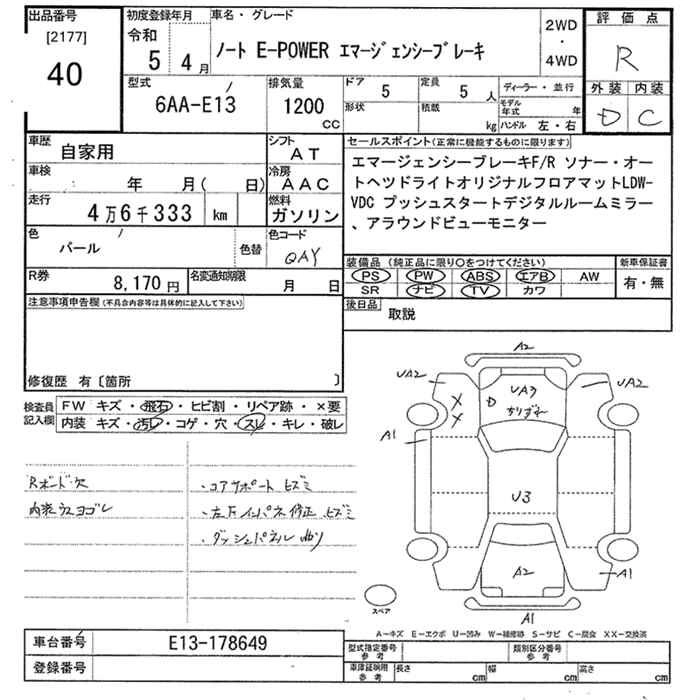 出品番号
[2177]
40
初度登録年月
令和
5 4月
車名・グレード
ノート E-POWER エマージェンシーブレーキ
2WD
・
4WD
評価点
R
外装 内装
D C
型式
6AA-E13
排気量
1200
cc
ドア 5
定員 5 人
形状
積載 kg
ディーラー・並行
モデル年式 年
ハンドル 左・右
車歴
自家用
シフト
AT
車検
年 月( 日)
冷房
AAC
走行
4万6千333 km
燃料
ガソリン
色
パール
色替
色コード
QAY
R券
8,170円
名変通知期限
月 日
セールスポイント(正常に機能するものに限ります)
エマージェンシーブレーキF/R ソナー・オー
トヘツドライトオリジナルフロアマットLDW-
VDC プッシュスタートデジタルルームミラー
、アラウンドビューモニター
装備品 (純正品に限り○をつけてください)
PS PW ABS エアB AW
SR ナビ TV カワ
新車保証書
有・無
後日品
取説
注意事項申告欄(不具合内容等は具体的に記入して下さい)
修復歴 有〔箇所 〕
検査員
記入欄
FW キズ・飛石・ヒビ割・リペア跡・×要
内装 キズ・汚レ・コゲ・穴・スレ・キレ・破レ
Rボード欠
内装ウスヨゴレ
・コアサポート ヒズミ
・左右インパネ修正 ヒズミ
・ダッシュパネル 曲り
A2
UA2
UA2
X
X
D
UA3
ちりずれ
A1
U3
A2
A1
A1
スペア
A-キズ E-エクボ U-凹み W-補修跡 S-サビ C-腐食 XX-交換済
車台番号
E13-178649
登録番号
型式指定番号
参考
類別区分番号
参考
車庫証明用
参考
長さ cm
幅 cm
高さ cm